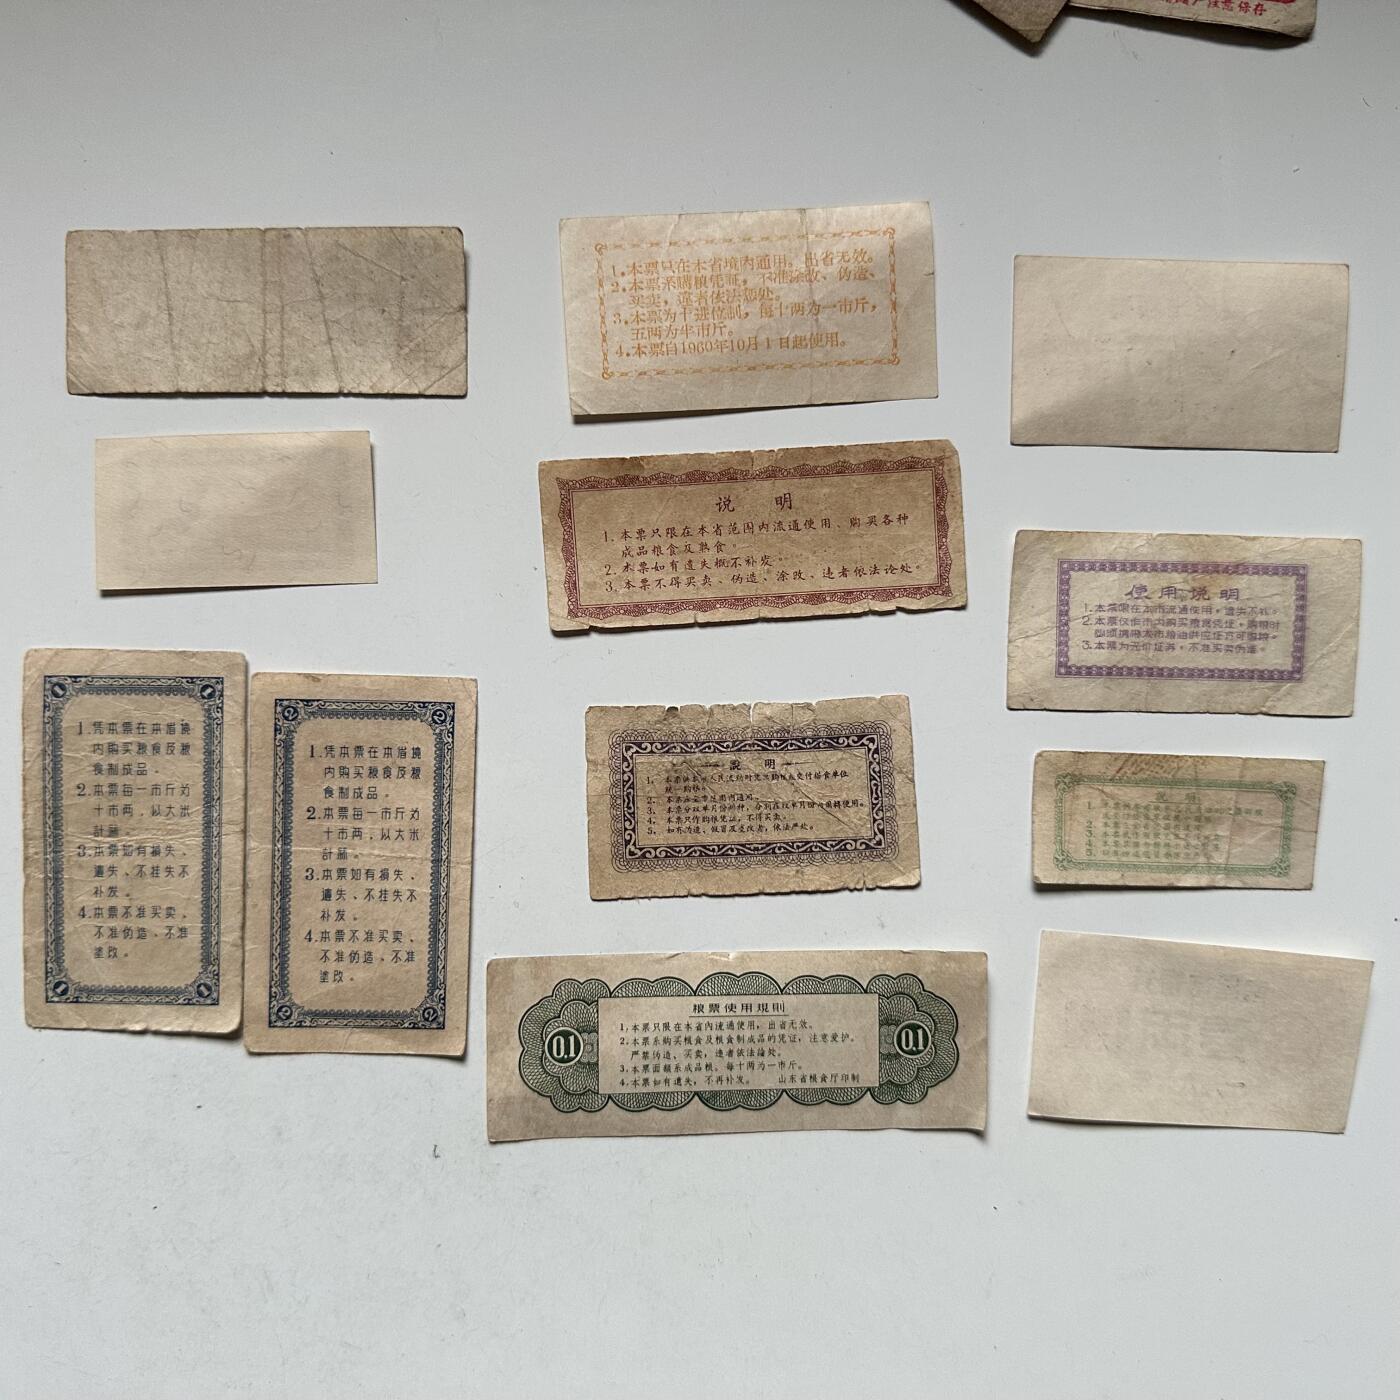 注意保存
1.本票只在本省境内通用。出省无效。
2.本票系購粮凭証，不准涂改、伪造、
买卖，違者依法惩处。
3.本票为十进位制，每十两为一市斤，
五两为半市斤。
4.本票自1960年10月1日起使用。
说 明
1.本票只限在本省范围内流通使用、购买各种
成品粮食及熟食。
2.本票如有遗失概不补发。
3.本票不得买卖、伪造、涂改、违者依法论处。
使用说明
1.本票限在本市流通使用，遗失不补。
2.本票仅作市内购买粮食凭证，购粮时
必须携带本市粮油供应证方可购粮。
3.本票为无价证券，不准买卖伪造。
1.凭本票在本省境
内购买粮食及粮
食制成品。
2.本票每一市斤为
十市两，以大米
計祘。
3.本票如有損失、
遺失、不挂失不
补发。
4.本票不准买卖、
不准伪造、不准
塗改。
1
1
1
1
1.凭本票在本省境
内购买粮食及粮
食制成品。
2.本票每一市斤为
十市两，以大米
計祘。
3.本票如有損失、
遺失、不挂失不
补发。
4.本票不准买卖、
不准伪造、不准
塗改。
2
2
2
2
说 明
统一购粮。
4.本票只作购粮凭证，不得买卖。
5.如有伪造、假冒及涂改者，依法严处。
说 明
1.
2.
3.
4.
5.
粮票使用規則
1.本票只限在本省內流通使用，出省无效。
2.本票系购买粮食及粮食制成品的凭证，注意爱护。
严禁伪造、买卖，違者依法論处。
3.本票面額系成品粮。每十两为一市斤。
4.本票如有遺失，不再补发。 山东省粮食厅印制
0.1
0.1